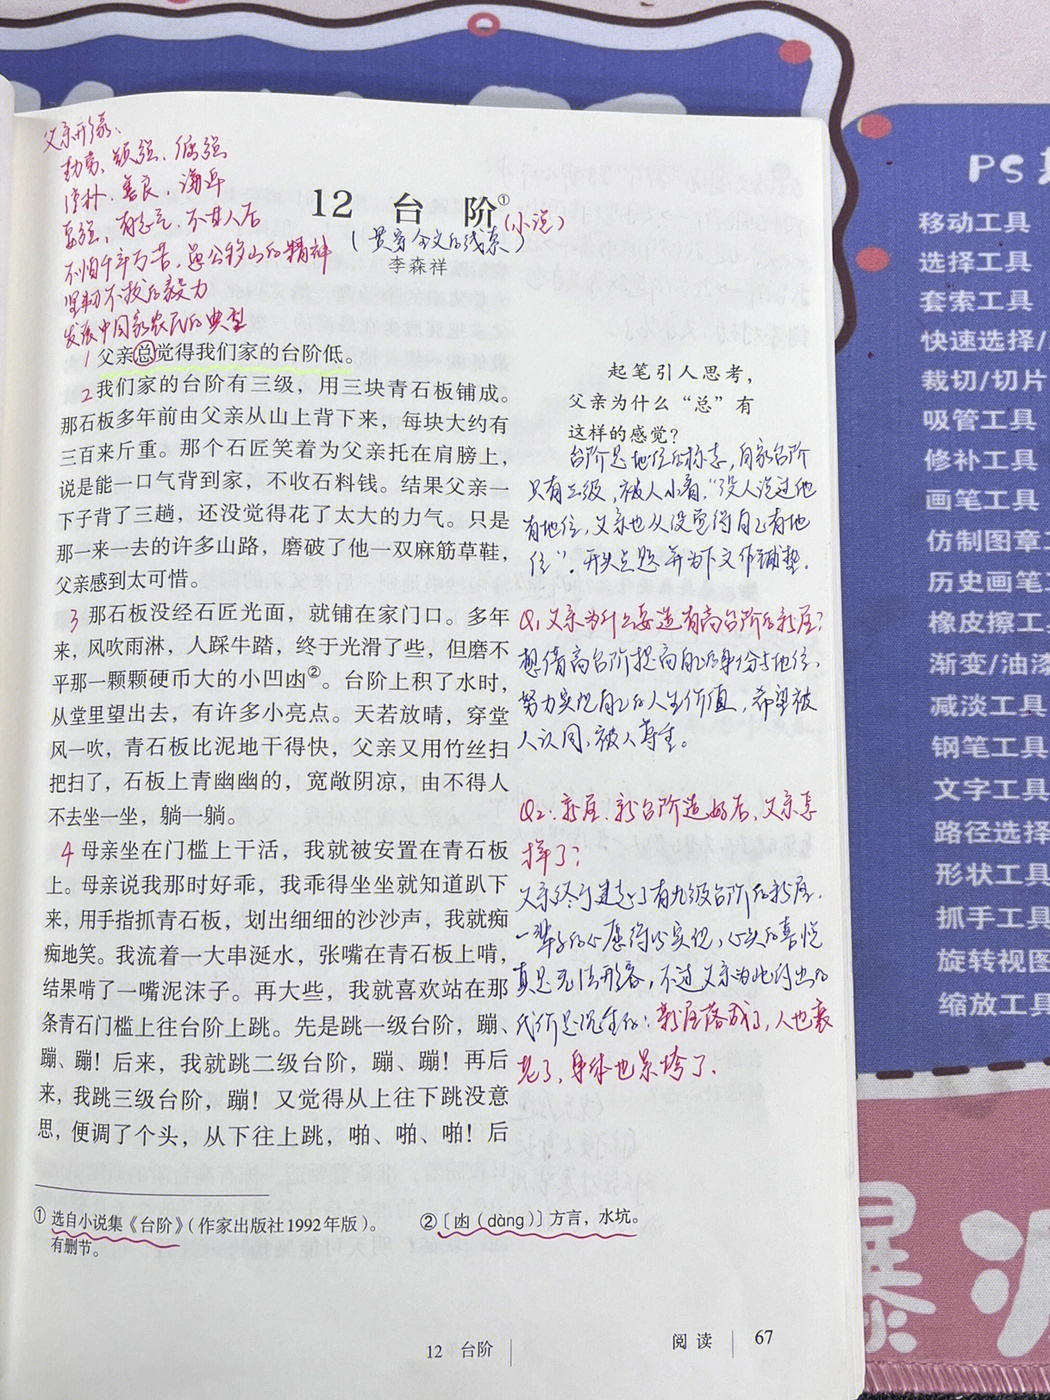 父亲形象、
勤劳、顽强、倔强
淳朴、善良、谦卑
要强、有志气、不甘人后
不怕千辛万苦、愚公移山的精神
坚韧不拔的毅力
发展中国家农民的典型
12 台阶①(小说)
(贯穿全文的线索)
李森祥
1 父亲总觉得我们家的台阶低。
2 我们家的台阶有三级，用三块青石板铺成。
那石板多年前由父亲从山上背下来，每块大约有
三百来斤重。那个石匠笑着为父亲托在肩膀上，
说是能一口气背到家，不收石料钱。结果父亲一
下子背了三趟，还没觉得花了太大的力气。只是
那一来一去的许多山路，磨破了他一双麻筋草鞋，
父亲感到太可惜。
3 那石板没经石匠光面，就铺在家门口。多年
来，风吹雨淋，人踩牛踏，终于光滑了些，但磨不
平那一颗颗硬币大的小凼②。台阶上积了水时，
从堂里望出去，有许多小亮点。天若放晴，穿堂
风一吹，青石板比泥地干得快，父亲又用竹丝扫
把扫了，石板上青幽幽的，宽敞阴凉，由不得人
不去坐一坐，躺一躺。
4 母亲坐在门槛上干活，我就被安置在青石板
上。母亲说我那时好乖，我乖得坐坐就知道趴下
来，用手指抓青石板，划出细细的沙沙声，我就痴
痴地笑。我流着一大串涎水，张嘴在青石板上啃，
结果啃了一嘴泥沫子。再大些，我就喜欢站在那
条青石门槛上往台阶上跳。先是跳一级台阶，蹦、
蹦、蹦！后来，我就跳二级台阶，蹦、蹦！再后
来，我跳三级台阶，蹦！又觉得从上往下跳没意
思，便调了个头，从下往上跳，啪、啪、啪！后
起笔引人思考，
父亲为什么“总”有
这样的感觉？
台阶是地位的标志，自家台阶
只有三级，被人小看，“没人说过他
有地位，父亲也从没觉得自己有地
位”。开头点题并为下文作铺垫。
Q1父亲为什么要造有高台阶的新屋？
想借高台阶提高自己的身分与地位、
努力实现自己的人生价值，希望被
人认同，被人尊重。
Q2：新屋、新台阶造好后，父亲怎
样了？
父亲终于建起了有九级台阶的新屋，
一辈子的心愿得以实现，心头的喜悦
真是无法形容，不过父亲为此付出的
代价是沉重的：新屋落成了，人也衰
老了，身体也累垮了。
① 选自小说集《台阶》（作家出版社1992年版）。
有删节。
② 〔凼（dàng）〕方言，水坑。
12 台阶
阅读 67
移动工具
选择工具
套索工具
快速选择/
裁切/切片
吸管工具
修补工具
画笔工具
仿制图章
历史画笔
橡皮擦工
渐变/油漆
减淡工具
钢笔工具
文字工具
路径选择
形状工具
抓手工具
旋转视图
缩放工具
PS